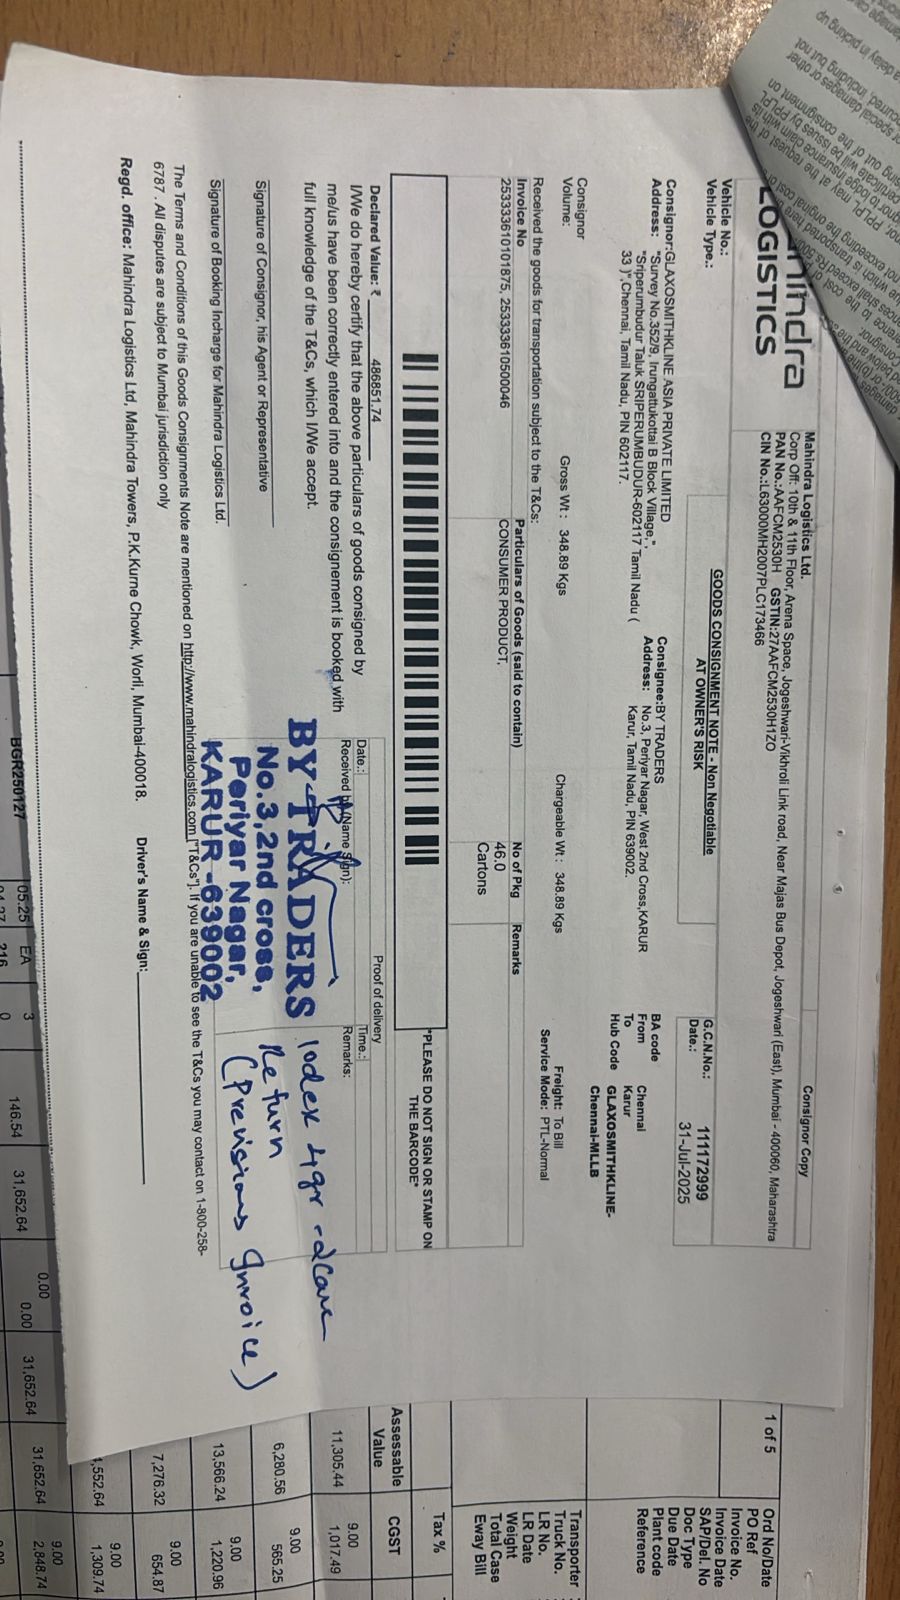 Consignor Copy
LOGISTICS
Mahindra Logistics Ltd.
Corp Off: 10th & 11th Floor, Arena Space, Jogeshwari-Vikhroli Link road, Near Majas Bus Depot, Jogeshwari (East), Mumbai - 400060, Maharashtra
PAN No.:AAFCM2530H GSTIN:27AAFCM2530H1ZO
CIN No.:L63000MH2007PLC173466
Vehicle No.:
Vehicle Type.:
GOODS CONSIGNMENT NOTE - Non Negotiable
AT OWNER'S RISK
G.C.N.No.: 111172999
Date.: 31-Jul-2025
Consignor:GLAXOSMITHKLINE ASIA PRIVATE LIMITED
Address: "Survey No.352/9, Irungattukottai B Block Village,",
"Sriperumbudur Taluk SRIPERUMBUDUR-602117 Tamil Nadu (
33 )",Chennai, Tamil Nadu, PIN 602117.
Consignee:BY TRADERS
Address: No.3, Periyar Nagar, West 2nd Cross,KARUR
Karur, Tamil Nadu, PIN 639002.
BA code
From Chennai
To Karur
Hub Code GLAXOSMITHKLINE-
Chennai-MLLB
Consignor
Volume:
Gross Wt : 348.89 Kgs
Chargeable Wt : 348.89 Kgs
Freight: To Bill
Service Mode: PTL-Normal
Received the goods for transportation subject to the T&Cs:
Invoice No Particulars of Goods (said to contain) No of Pkg Remarks
253333610101875, 253333610500046 CONSUMER PRODUCT, 46.0
Cartons
*PLEASE DO NOT SIGN OR STAMP ON
THE BARCODE*
Declared Value: ₹ 486851.74
I/We do hereby certify that the above particulars of goods consigned by
me/us have been correctly entered into and the consignement is booked with
full knowledge of the T&Cs, which I/We accept.
Proof of delivery
Date.: Time.:
Received by(Name Sign): Remarks:
BY TRADERS
No.3,2nd cross,
Periyar Nagar,
KARUR-639002
Iodex 4gr - 2Case
Return
Signature of Consignor, his Agent or Representative
Signature of Booking Incharge for Mahindra Logistics Ltd.
The Terms and Conditions of this Goods Consignments Note are mentioned on http://www.mahindralogistics.com ["T&Cs"]. If you are unable to see the T&Cs you may contact on 1-800-258-
6787 . All disputes are subject to Mumbai jurisdiction only
Regd. office: Mahindra Logistics Ltd, Mahindra Towers, P.K.Kurne Chowk, Worli, Mumbai-400018. Driver's Name & Sign:
1 of 5
Ord No/Date
PO Ref
Invoice No.
Invoice Date
SAP/Del. No
Doc Type
Due Date
Plant code
Reference
Transporter
Truck No.
LR No.
LR Date
Weight
Total Case
Eway Bill
Tax %
Assessable
Value
CGST
11,305.44 9.00
1,017.49
6,280.56 9.00
565.25
13,566.24 9.00
1,220.96
7,276.32 9.00
654.87
9.00
1,309.74
BGR250127 05.25 EA 3 146.54 31,652.64 0.00 0.00 31,652.64 31,652.64 9.00
2,848.74
216 0